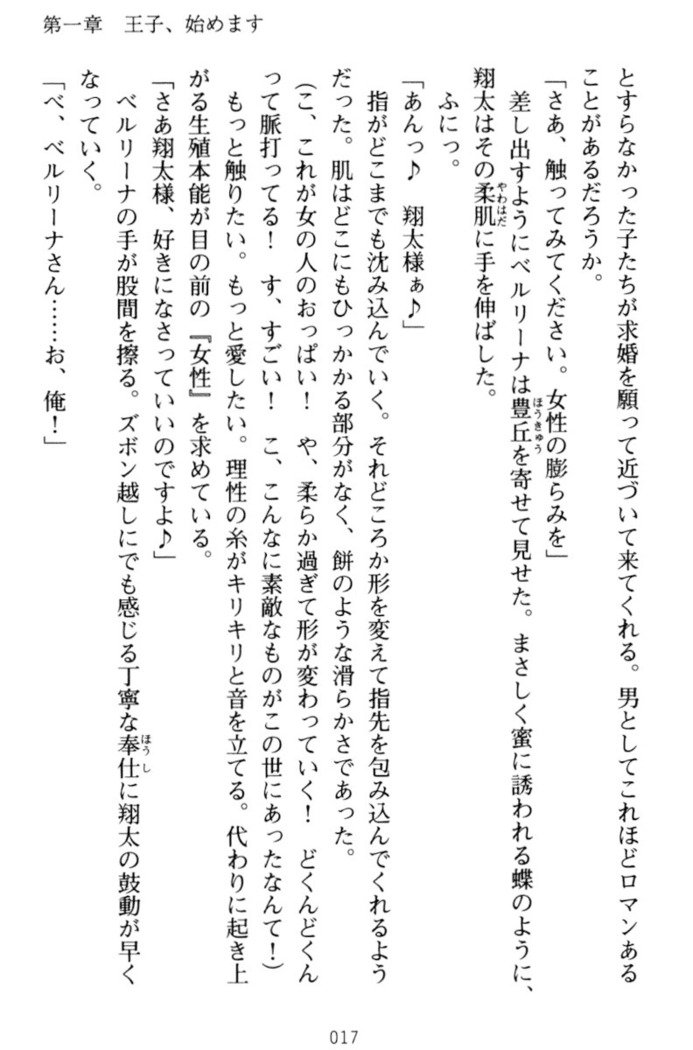 第一章　王子、始めます
とすらなかった子たちが求婚を願って近づいて来てくれる。男としてこれほどロマンある
ことがあるだろうか。
「さあ、触ってみてください。女性の膨らみを」
ほうきゅう
差し出すようにベルリーナは豊丘を寄せて見せた。まさしく蜜に誘われる蝶のように、
やわはだ
翔太はその柔肌に手を伸ばした。
ふにっ。
「あんっ♪　翔太様ぁ♪」
指がどこまでも沈み込んでいく。それどころか形を変えて指先を包み込んでくれるよう
だった。肌はどこにもひっかかる部分がなく、餅のような滑らかさであった。
(こ、これが女の人のおっぱい！　や、柔らか過ぎて形が変わっていく！　どくんどくん
って脈打ってる！　す、すごい！　こ、こんなに素敵なものがこの世にあったなんて！)
もっと触りたい。もっと愛したい。理性の糸がキリキリと音を立てる。代わりに起き上
がる生殖本能が目の前の『女性』を求めている。
「さあ翔太様、好きになさっていいのですよ♪」
ほうし
ベルリーナの手が股間を擦る。ズボン越しにでも感じる丁寧な奉仕に翔太の鼓動が早く
なっていく。
「べ、ベルリーナさん……お、俺！」
017